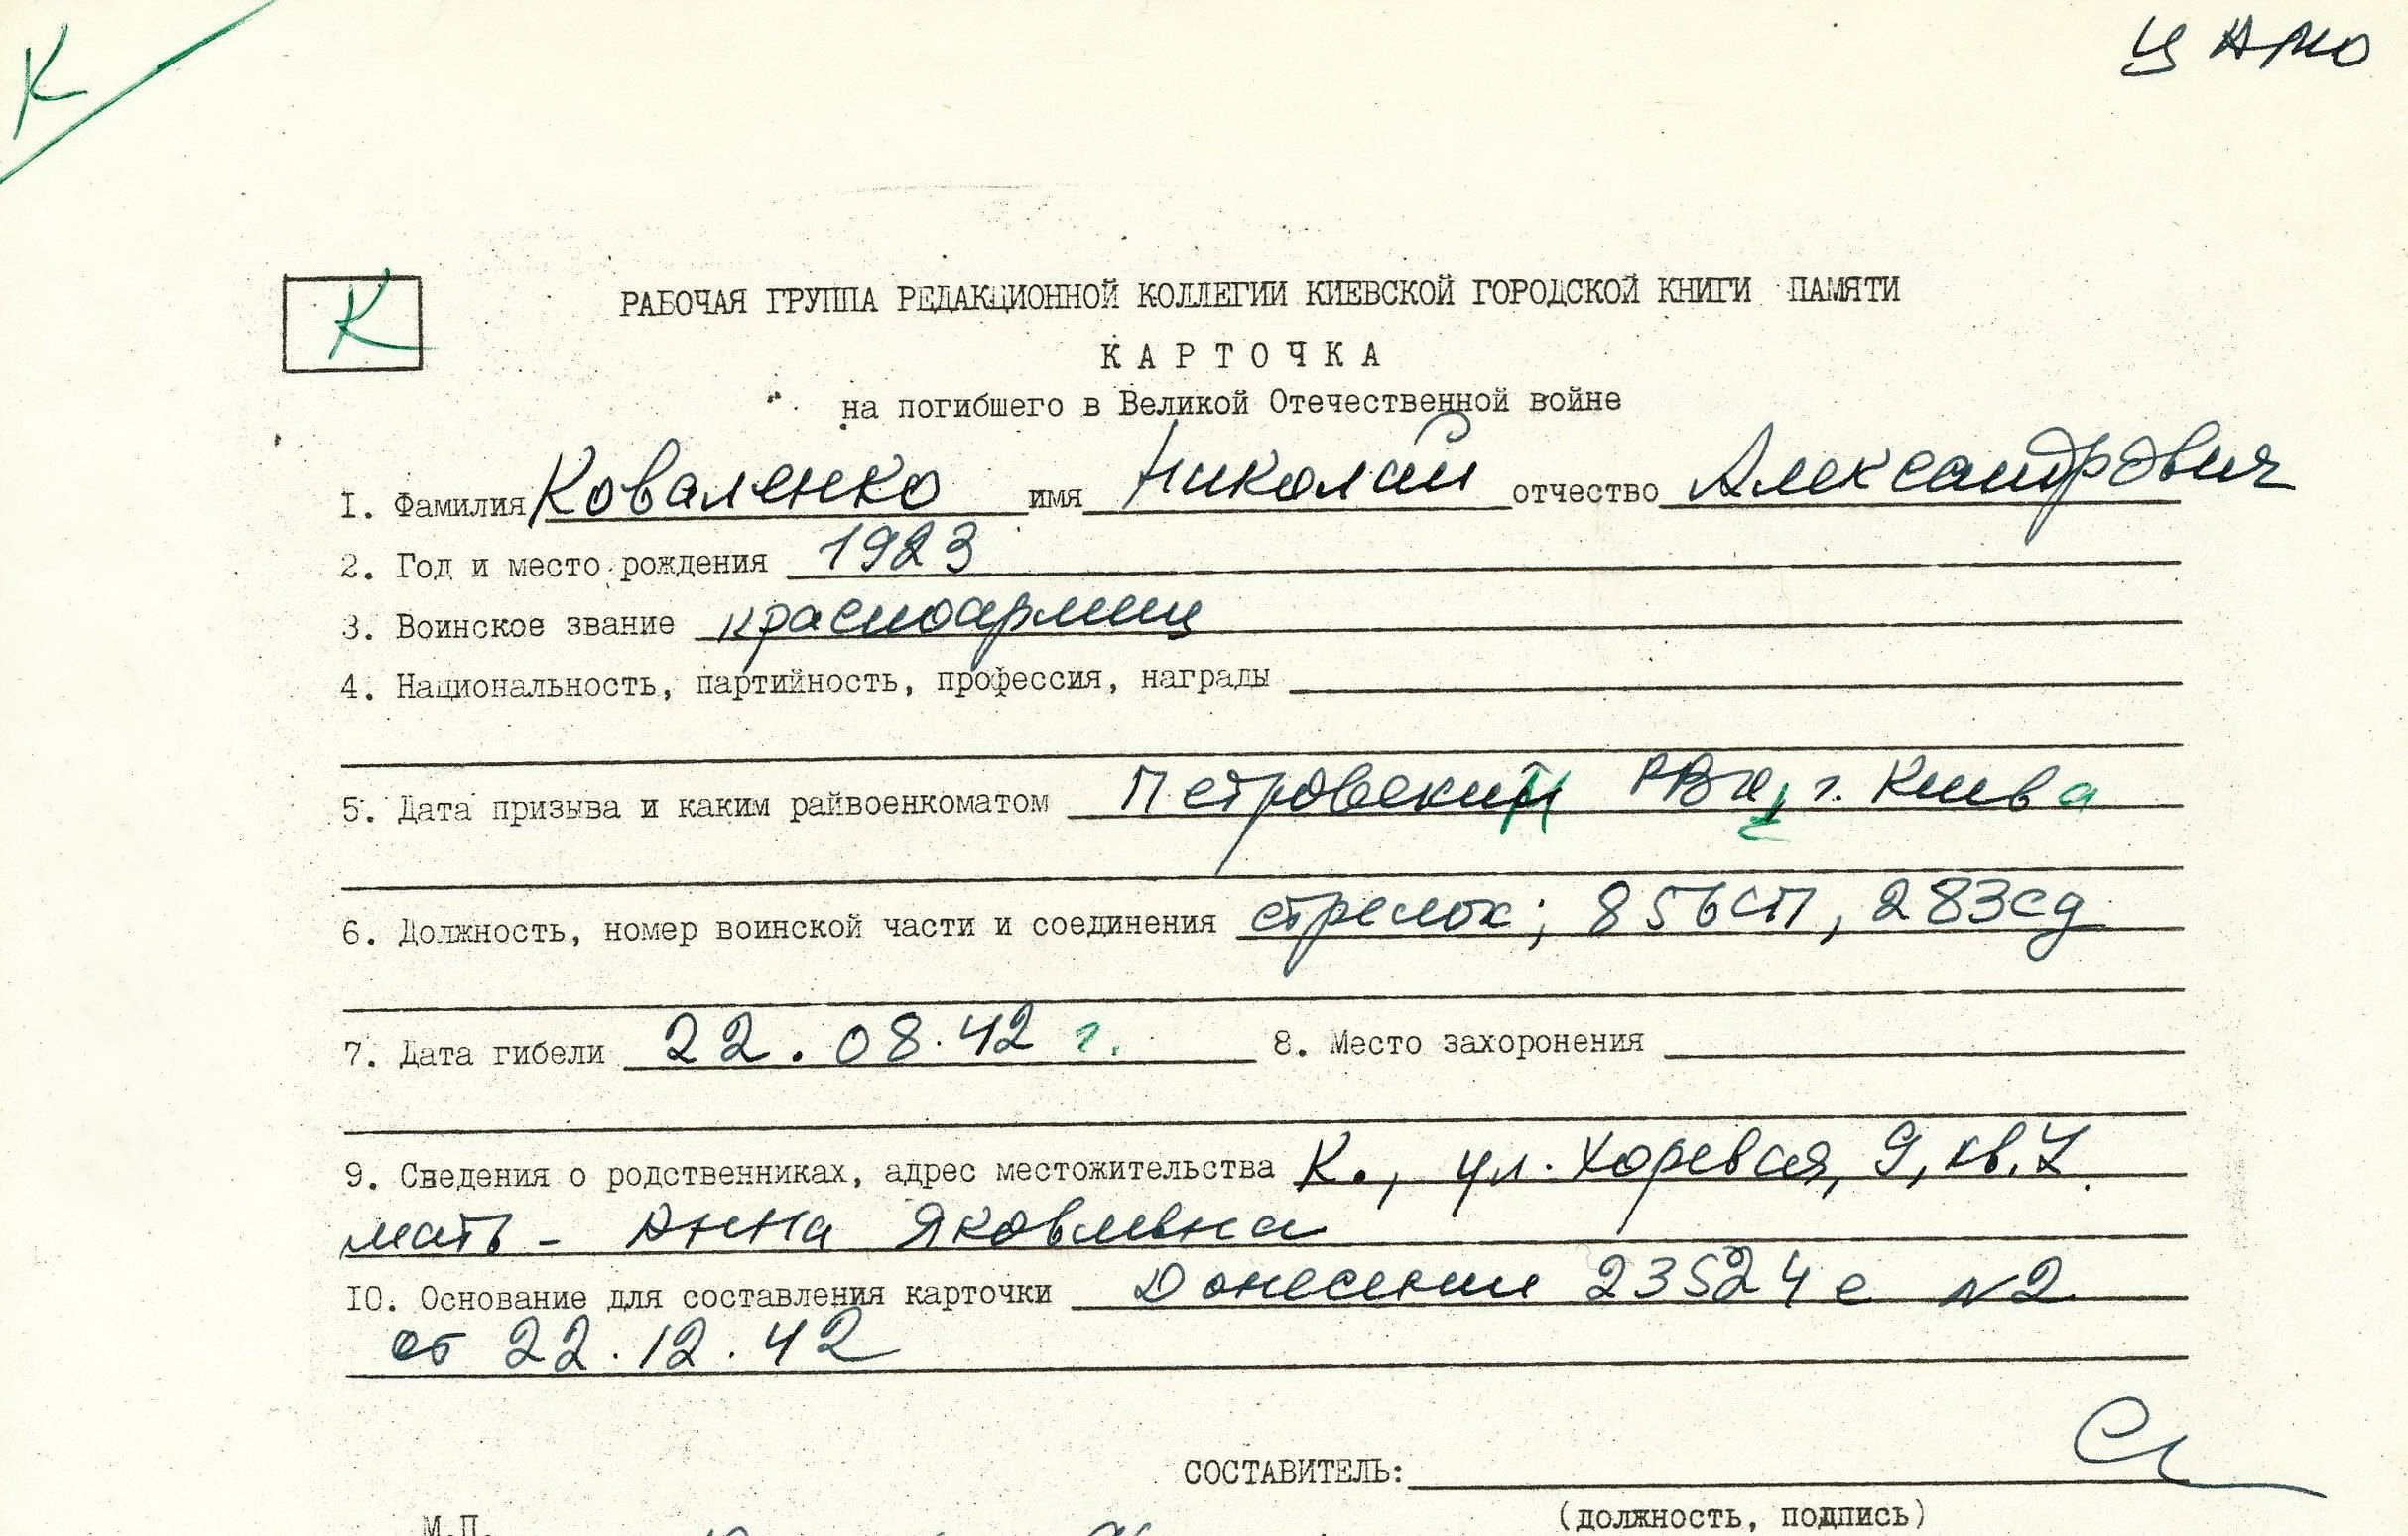 К
ЦАМО
К
РАБОЧАЯ ГРУППА РЕДАКЦИОННОЙ КОЛЛЕГИИ КИЕВСКОЙ ГОРОДСКОЙ КНИГИ ПАМЯТИ
КАРТОЧКА
на погибшего в Великой Отечественной войне
I. Фамилия Коваленко имя Николай отчество Александрович
2. Год и место рождения 1923
3. Воинское звание красноармеец
4. Национальность, партийность, профессия, награды
5. Дата призыва и каким райвоенкоматом Петровским РВК, г. Киева
6. Должность, номер воинской части и соединения стрелок; 856сп, 283сд
7. Дата гибели 22.08.42 г. 8. Место захоронения
9. Сведения о родственниках, адрес местожительства К., ул. Хоревая, 9, кв.
мать - Анна Яковлевна
IO. Основание для составления карточки Донесение 23524 с №2
от 22.12.42
СОСТАВИТЕЛЬ:
(должность, подпись)
М.П.